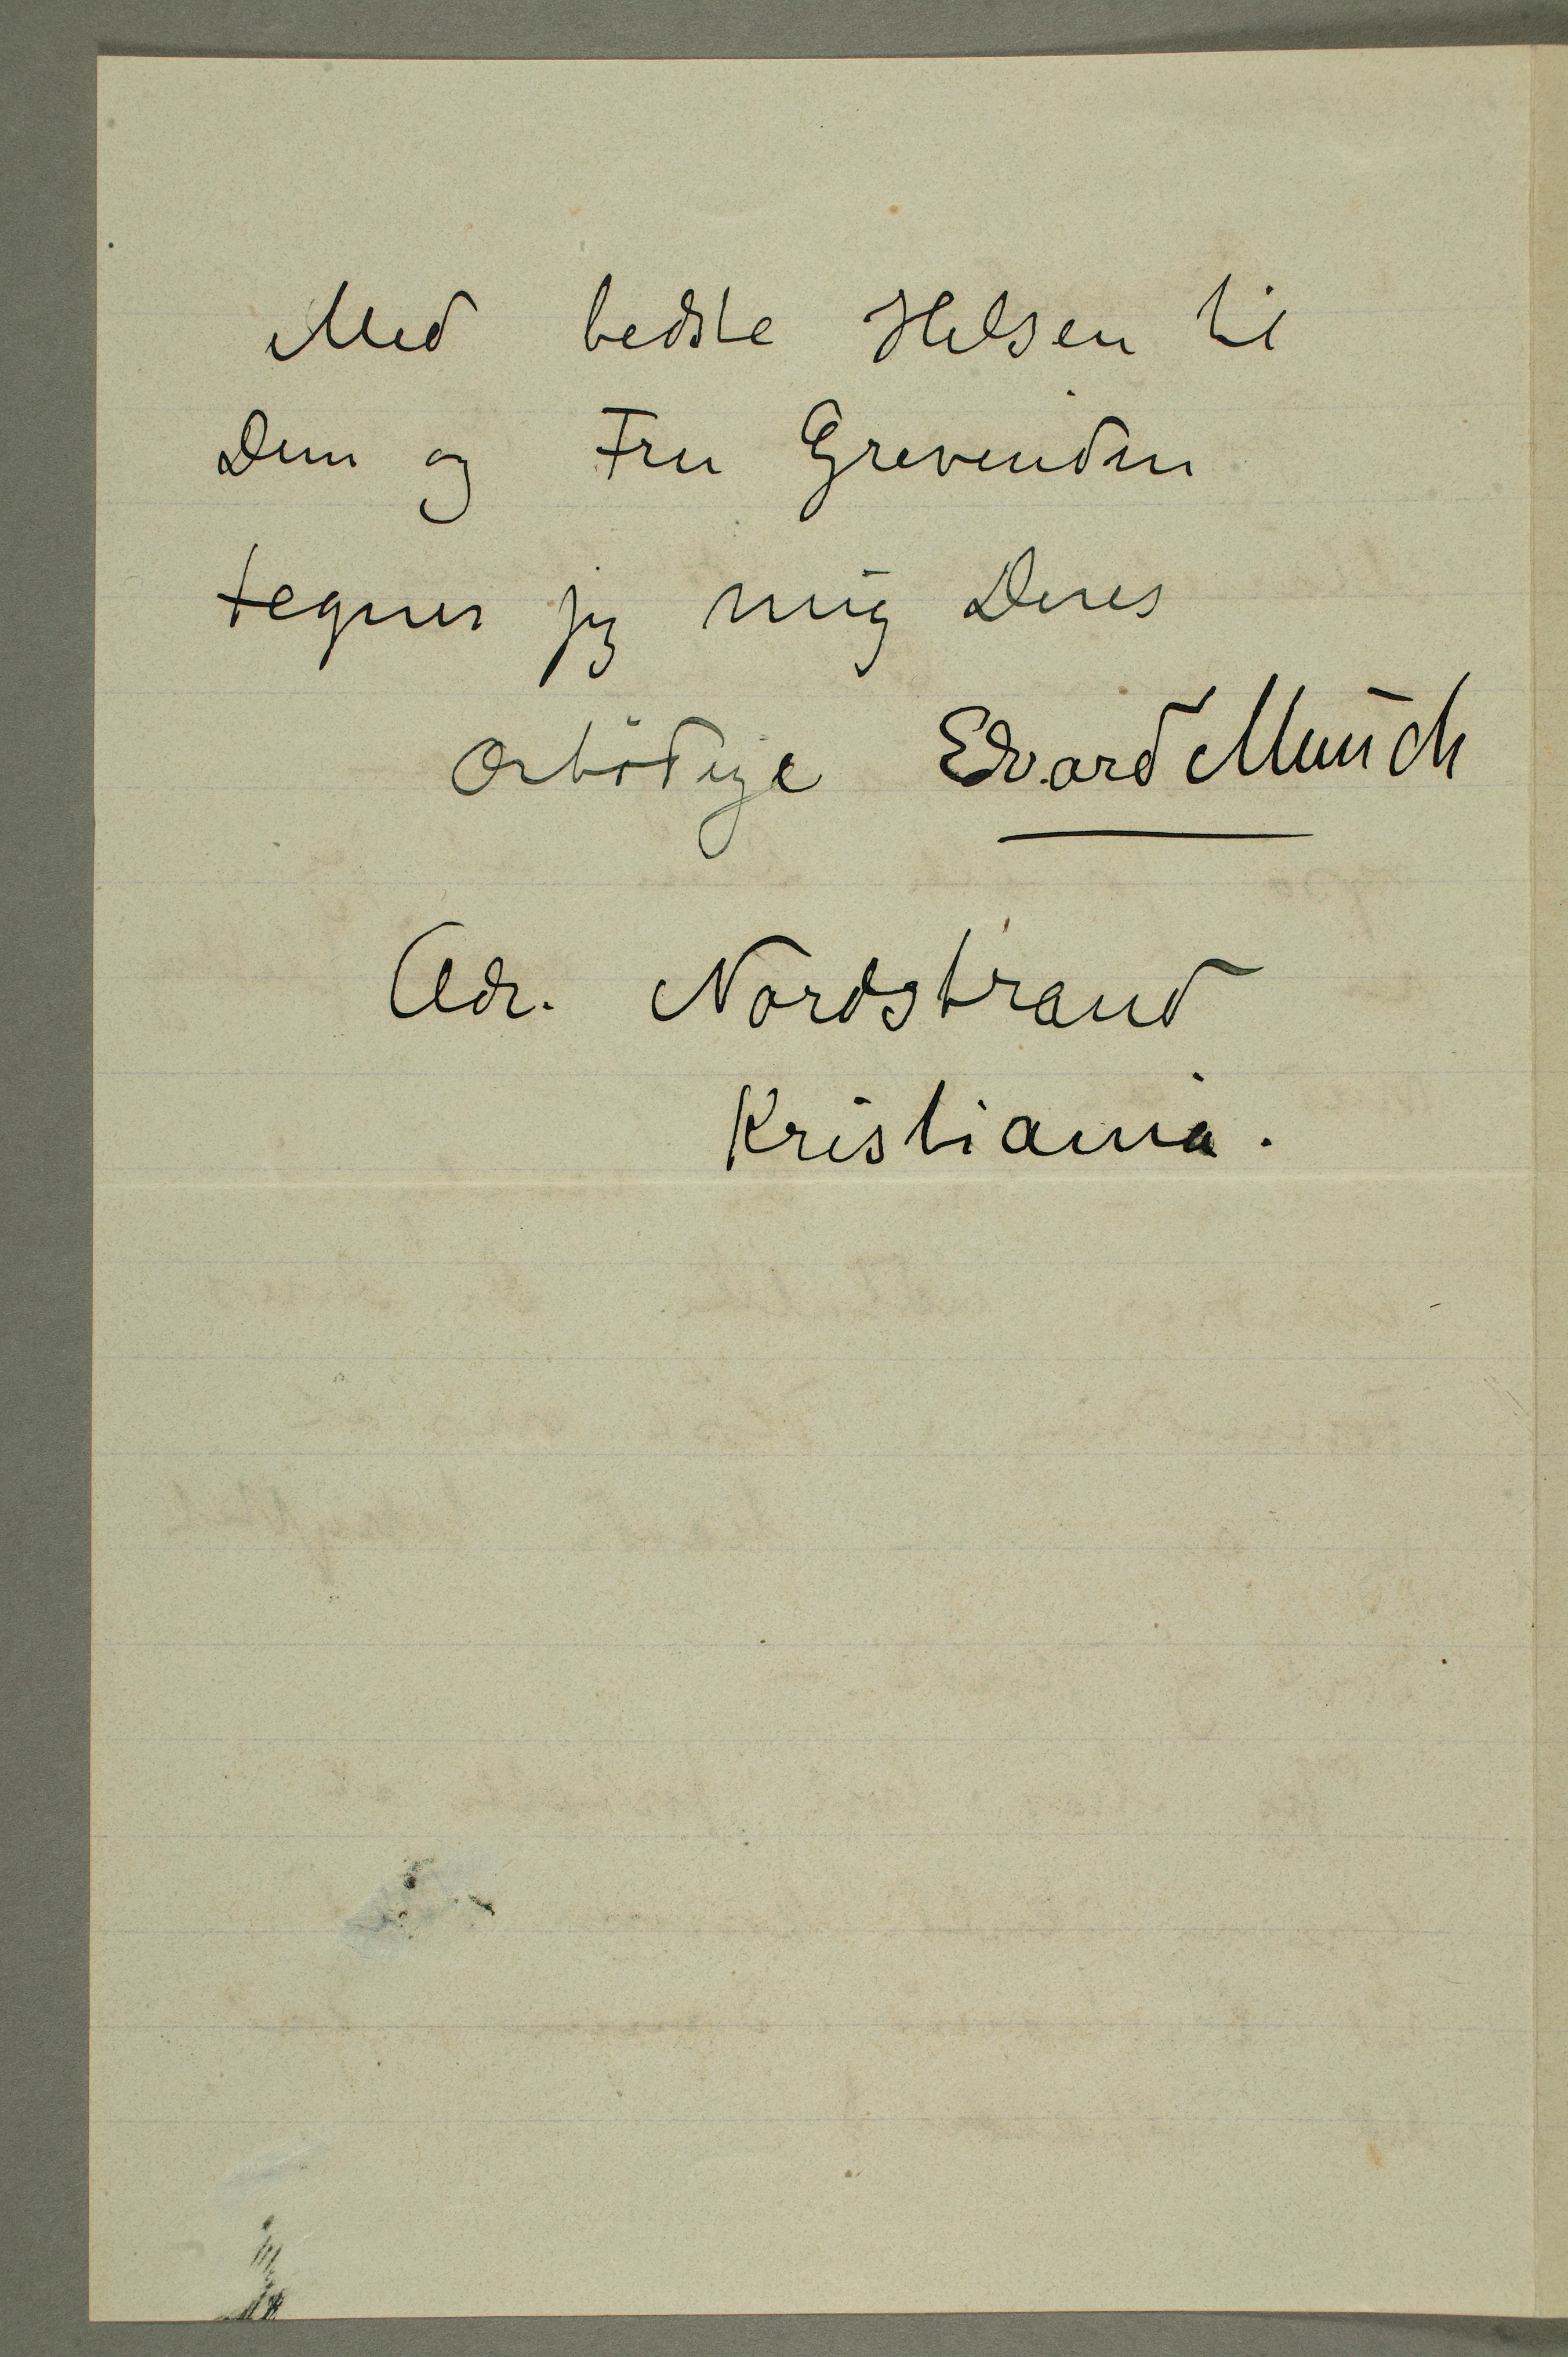 Med bedste Helsen til
Dem og Fru Grevinden
tegner jeg mig Deres
ærbödige Edvard Munch
Adr. Nordstrand
Kristiania.